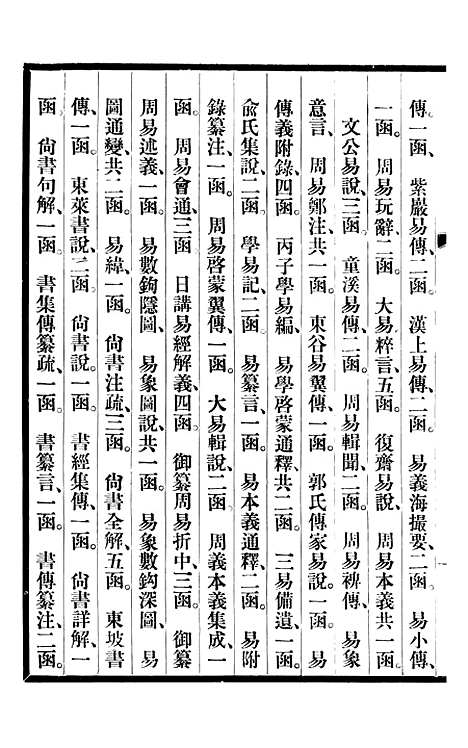 傳、一函。　紫巖易傳、二函。　漢上易傳、二函。　易義海撮要、二函。　易小傳、
一函。　周易玩辭、二函。　大易粹言、五函。　復齋易說、　周易本義共一函。
文公易說、三函。　童溪易傳、二函。　周易輯聞、二函。　周易裨傳、　易象
意言、　周易鄭注、共一函。　東谷易翼傳、一函。　郭氏傳家易說、一函。　易
傳義附錄、四函。　丙子學易編、　易學啓蒙通釋、共二函。　三易備遺、一函。
兪氏集說、二函。　學易記、二函。　易纂言、一函。　易本義通釋、二函。　易附
錄纂注、一函。　周易啓蒙翼傳、一函。　大易輯說、二函。　周義本義集成、一
函。　周易會通、三函。　日講易經解義、四函。　御纂周易折中、三函。　御纂
周易述義、一函。　易數鉤隱圖、　易象圖說、共一函。　易象數鈎深圖、　易
圖通變、共二函。　易緯、一函。　尙書注疏、三函。　尙書全解、五函。　東坡書
傳、一函。　東萊書說、二函。　尙書說、一函。　書經集傳、一函。　尙書詳解、一
函。　尙書句解、一函。　書集傳纂疏、一函。　書纂言、一函。　書傳纂注、二函。